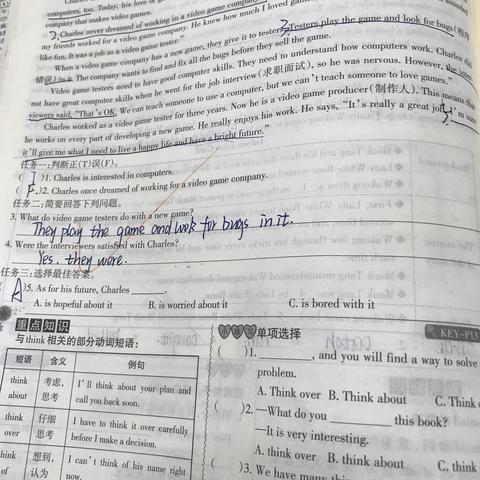 computers, too. Today, his love of
company that makes video games.
2. Charles never dreamed of working in a video game company.
my friends worked for a video game company. He knew how much I loved
like fun. It was a job as a video game tester."
When a video game company has a new game, they give it to testers. 3 Testers play the game and look for bugs (程序
错误) in it. The company wants to find and fix all the bugs before they sell the game.
Video game testers need to have good computer skills. They need to understand how computers work. Charles did
not have great computer skills when he went for the job interview (求职面试), so he was nervous. However, the inter-
viewers said, "That's OK. We can teach someone to use a computer, but we can't teach someone to love games."
Charles worked as a video game tester for three years. Now he is a video game producer (制作人). This means that
he works on every part of developing a new game. He really enjoys his work. He says, "It's really a great job. I'm sure
it'll give me what I need to live a happy life and have a bright future."
任务一:判断正(T)误(F)。
( T )1. Charles is interested in computers.
( F )2. Charles once dreamed of working for a video game company.
任务二:简要回答下列问题。
3. What do video game testers do with a new game?
They play the game and look for bugs in it.
4. Were the interviewers satisfied with Charles?
Yes, they were.
任务三:选择最佳答案。
( A )5. As for his future, Charles ______.
A. is hopeful about it B. is worried about it C. is bored with it
重点知识
与 think 相关的部分动词短语:
短语 含义 例句
think about 考虑,思考 I'll think about your plan and call you back soon.
think over 仔细思考 I have to think it over carefully before I make a decision.
think of 想到,认为 I can't think of his name right now.
单项选择
KEY-P13
( )1. ______, and you will find a way to solve
problem.
A. Think over B. Think about C. Think
( )2. —What do you ______ this book?
—It is very interesting.
A. think over B. think about C. think
( )3. We have many